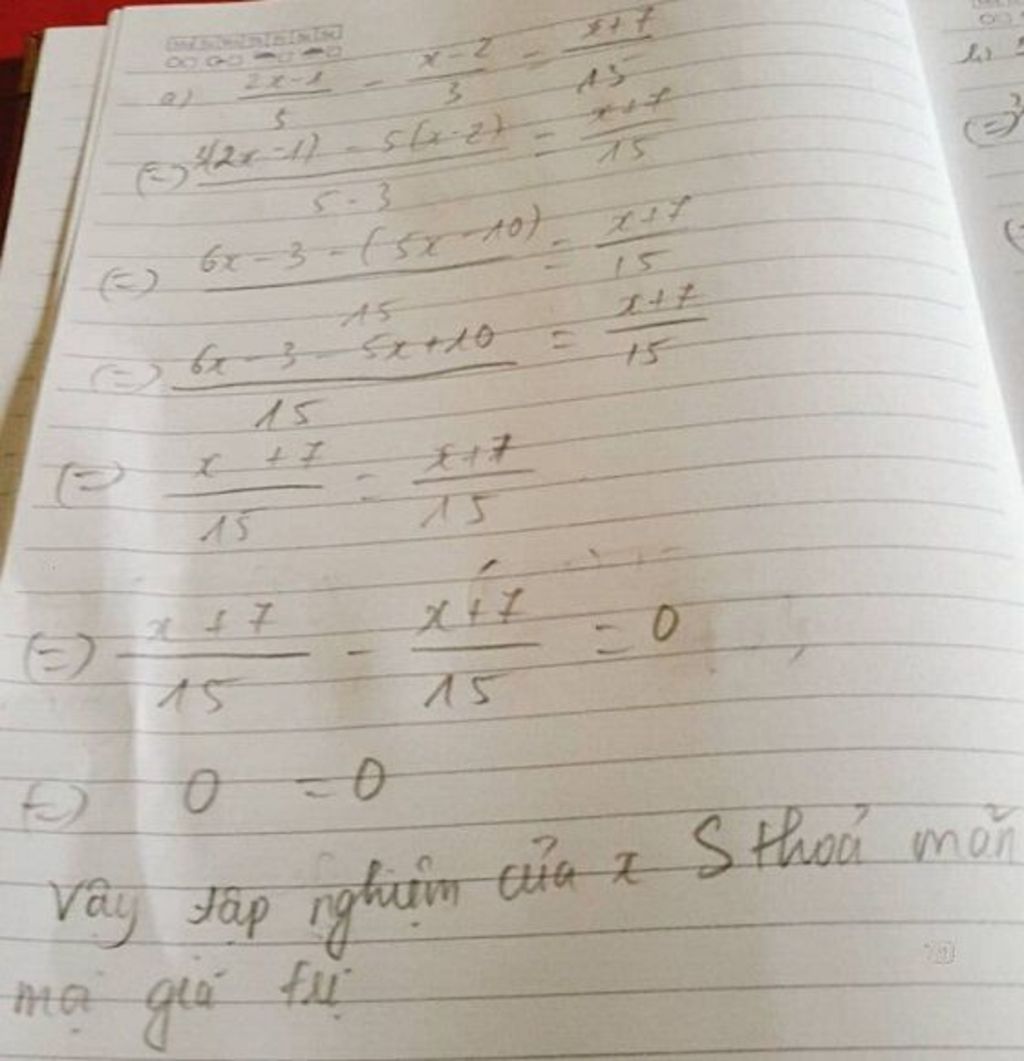 a) \frac{2x-1}{5} - \frac{x-2}{3} = \frac{x+7}{15}
(=) \frac{3(2x-1) - 5(x-2)}{5-3} = \frac{x+7}{15}
(=) \frac{6x-3-(5x-10)}{15} = \frac{x+7}{15}
(=) \frac{6x-3-5x+10}{15} = \frac{x+7}{15}
(=) \frac{x+7}{15} = \frac{x+7}{15}
(=) \frac{x+7}{15} - \frac{x+7}{15} = 0
(=) 0 = 0
Vậy tập nghiệm của x S thoả mãn
mọi giá trị